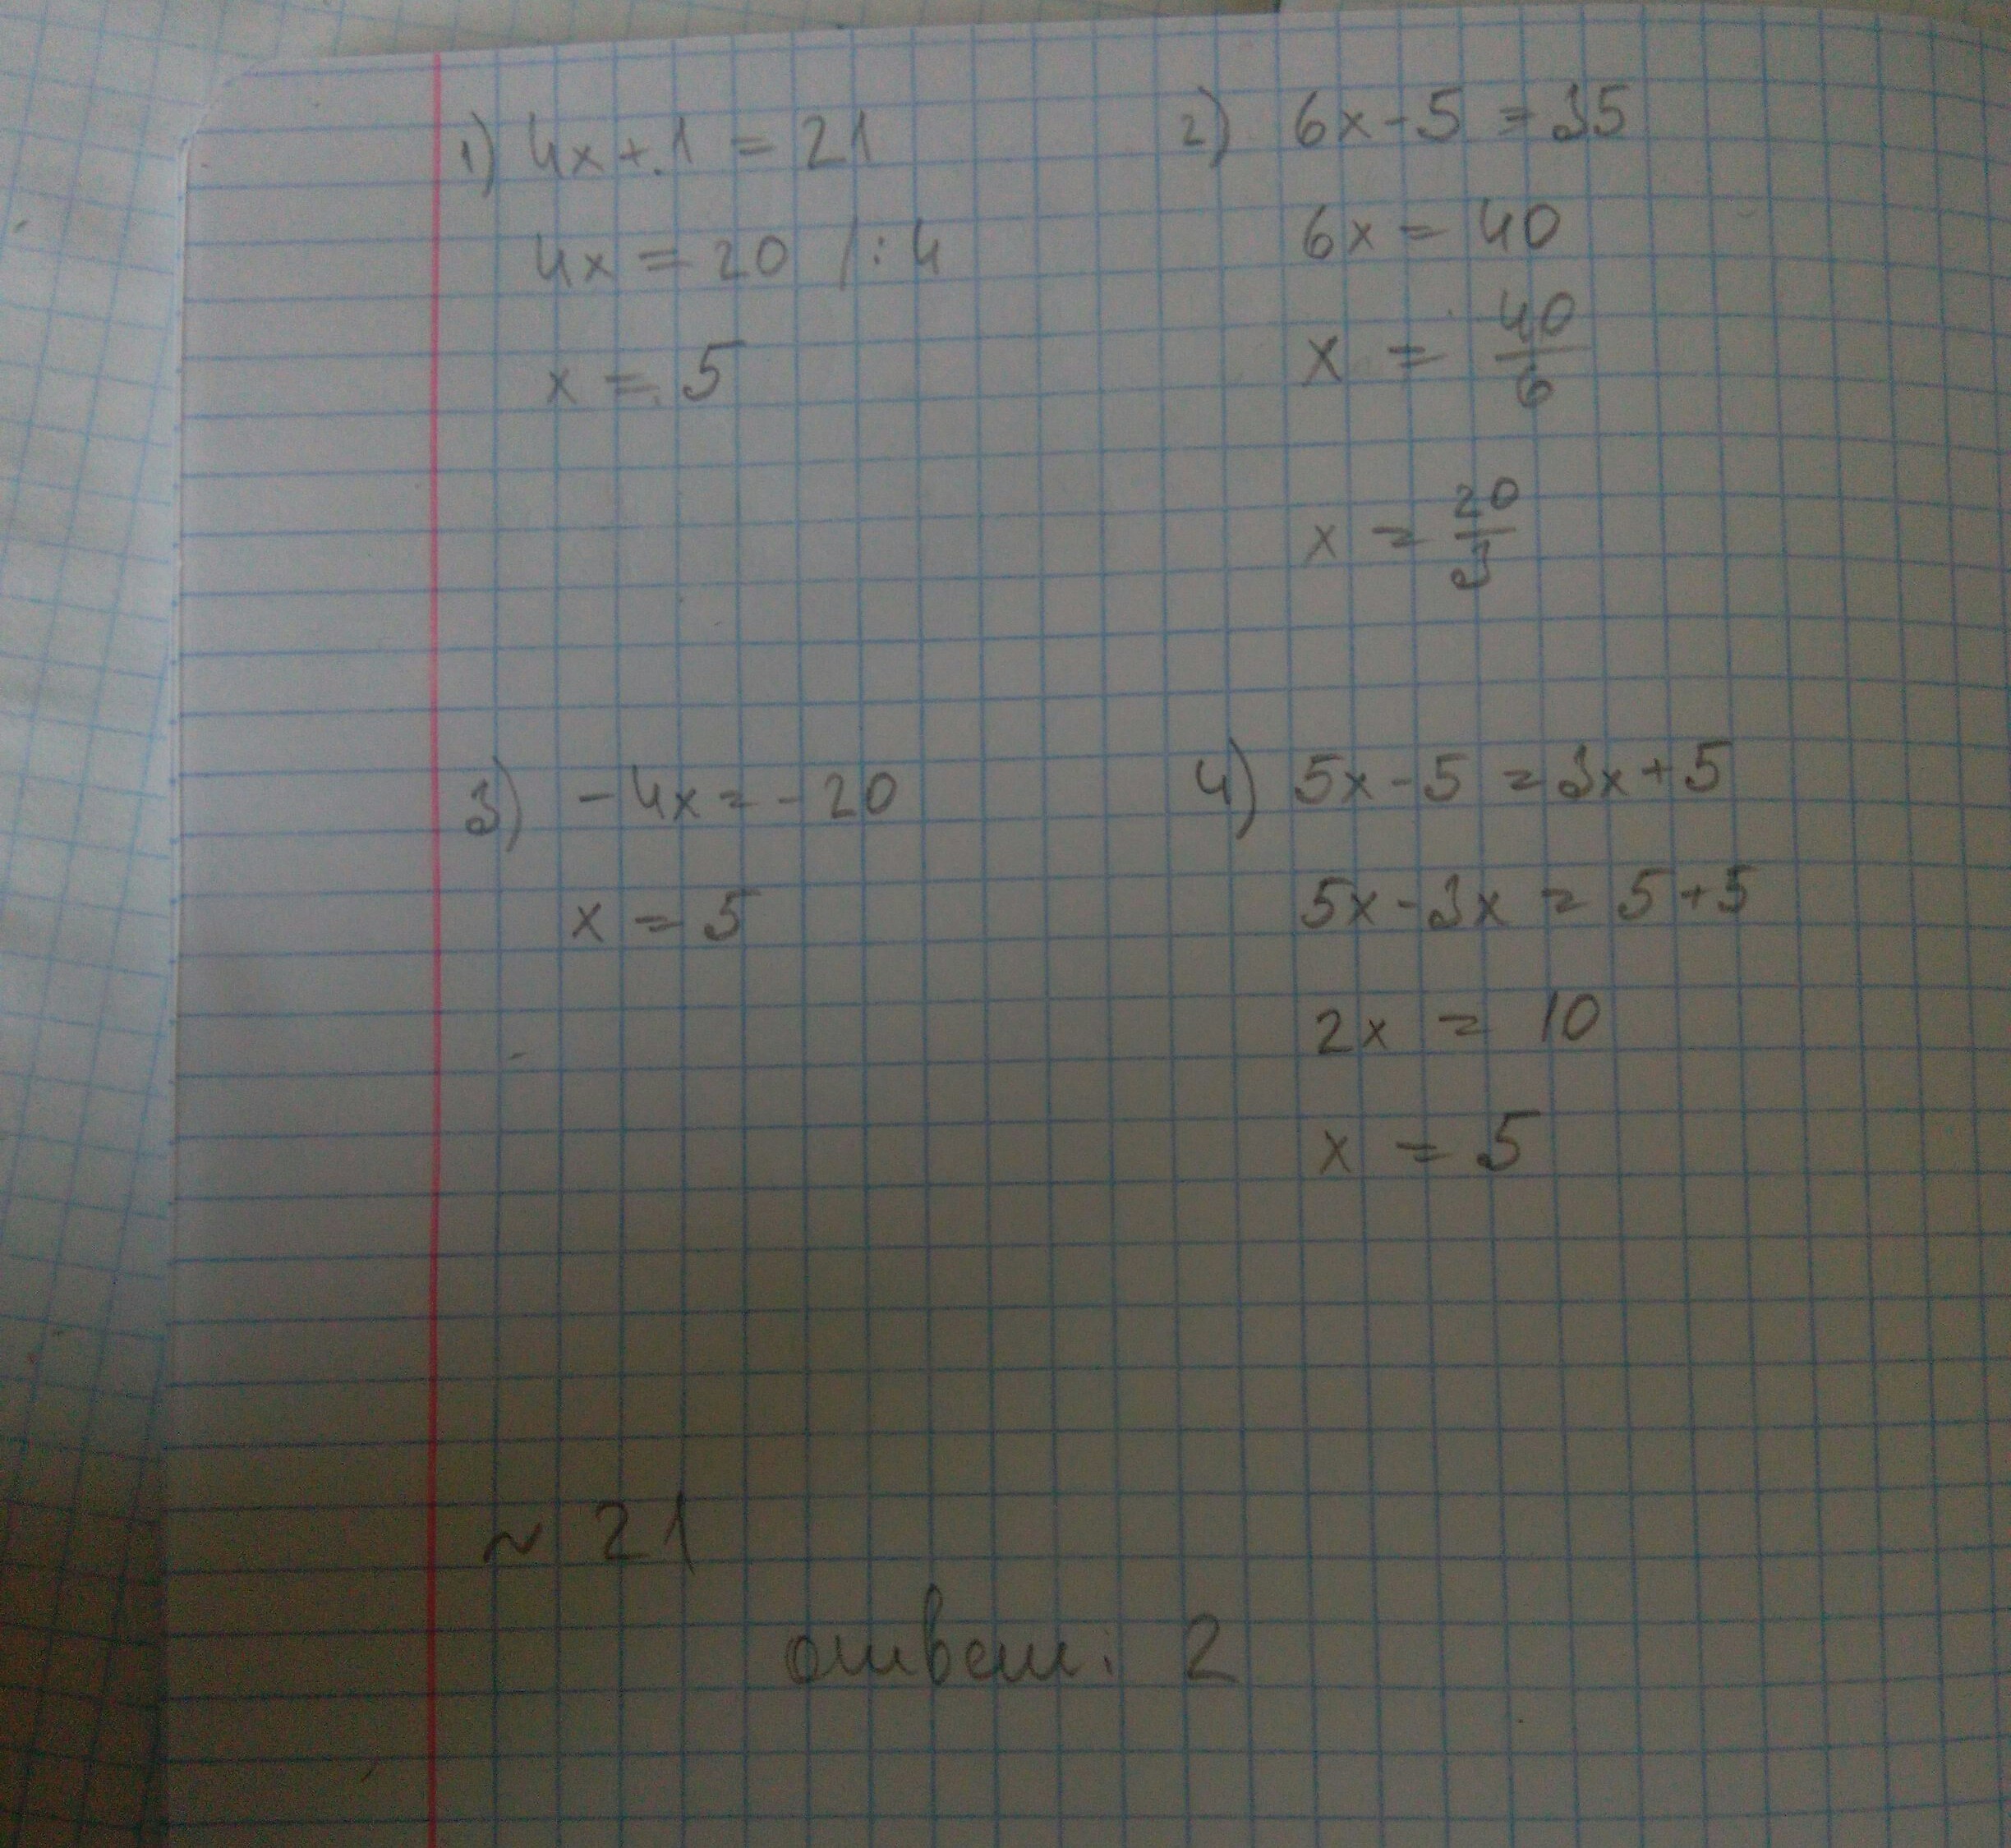 1) 4x + 1 = 21
4x = 20 /:4
x = 5
2) 6x - 5 = 35
6x = 40
x = 40/6
x = 20/3
3) -4x = -20
x = 5
4) 5x - 5 = 3x + 5
5x - 3x = 5 + 5
2x = 10
x = 5
~ 21
ответ: 2